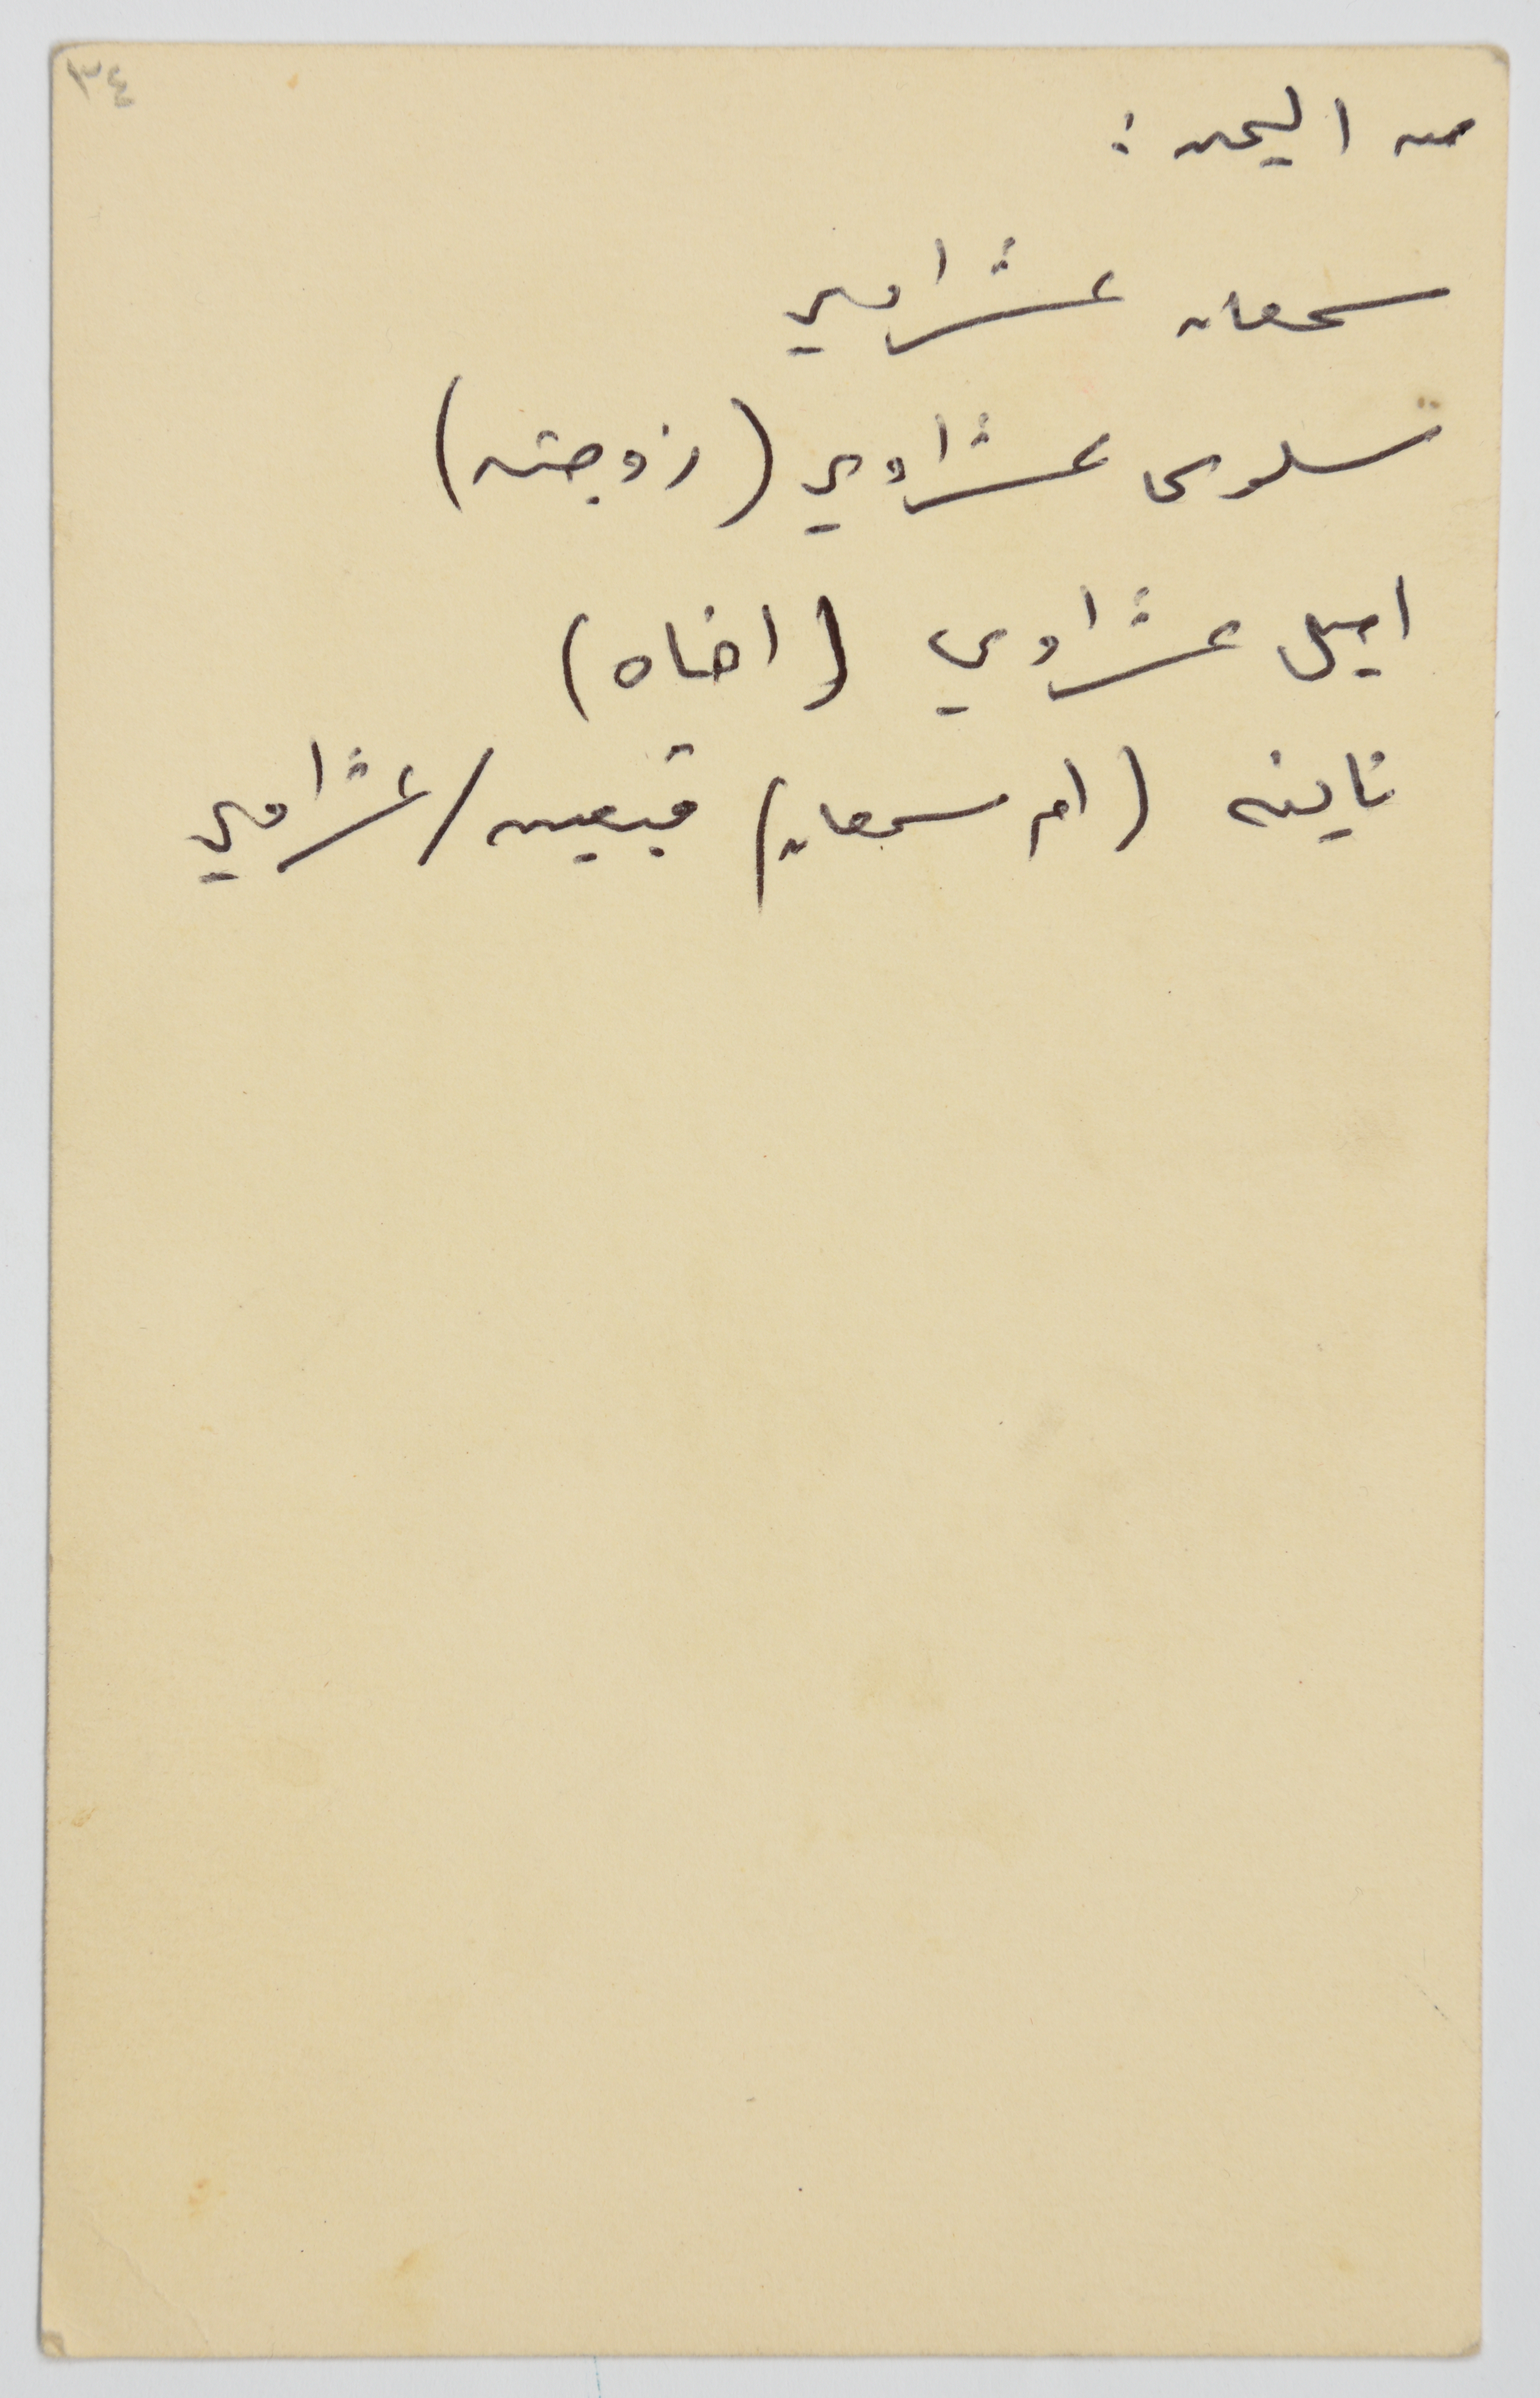 ٣٤
من اليمين :
سمعان عشراوي
سلوى عشراوي (زوجته)
اميل عشراوي (اخاه)
ناينه (ام سمعان) قبعين/عشراوي